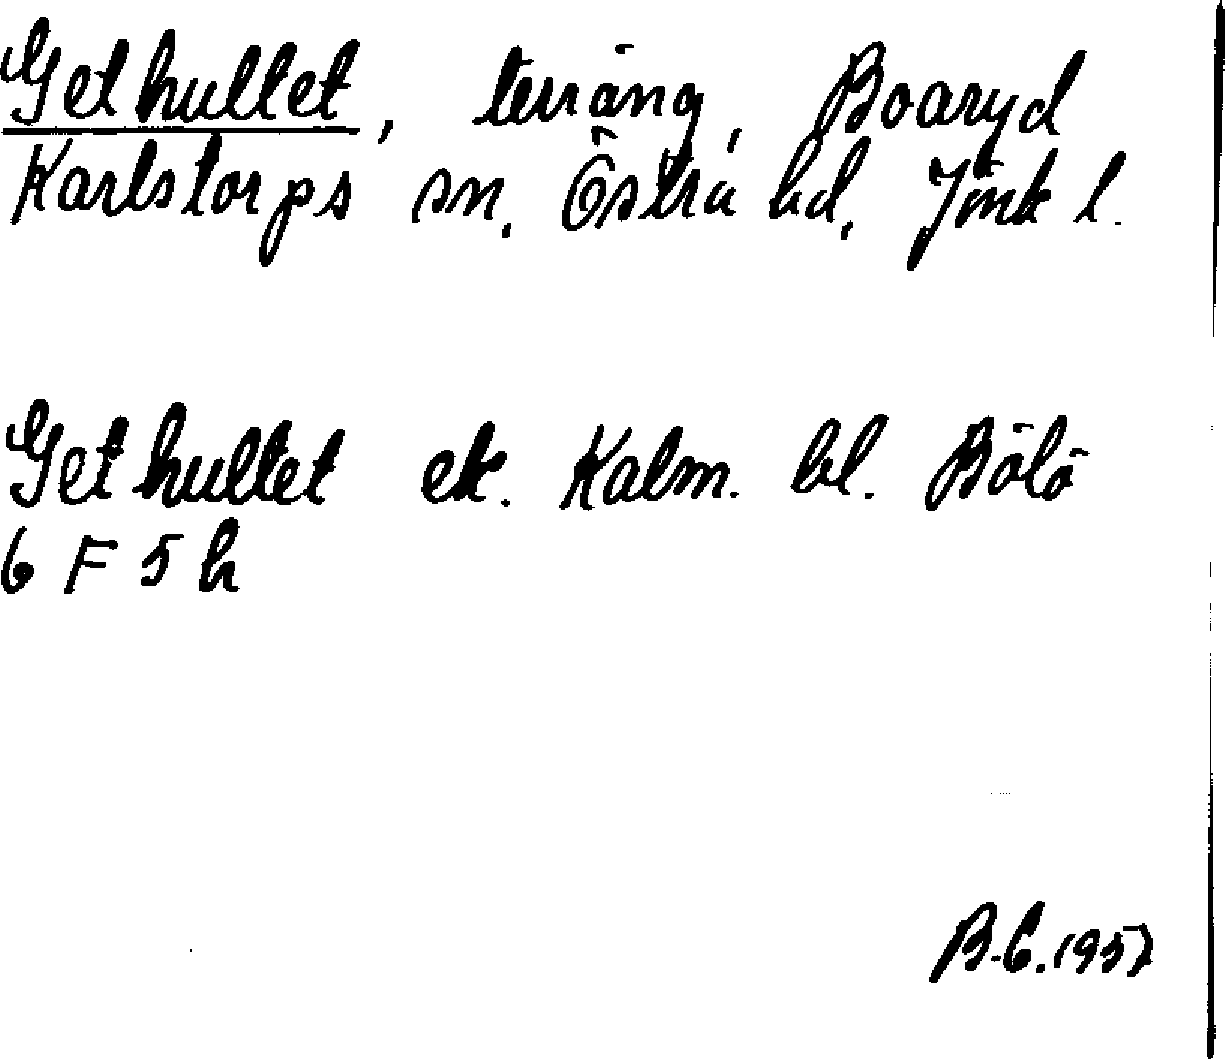 Gethultet, terräng, Boaryd
Karlstorps sn. Östra hd, Jönk l.
Gethultet ek. Kalm. bl. Bölö
6 F 5 h
B.C. 1957